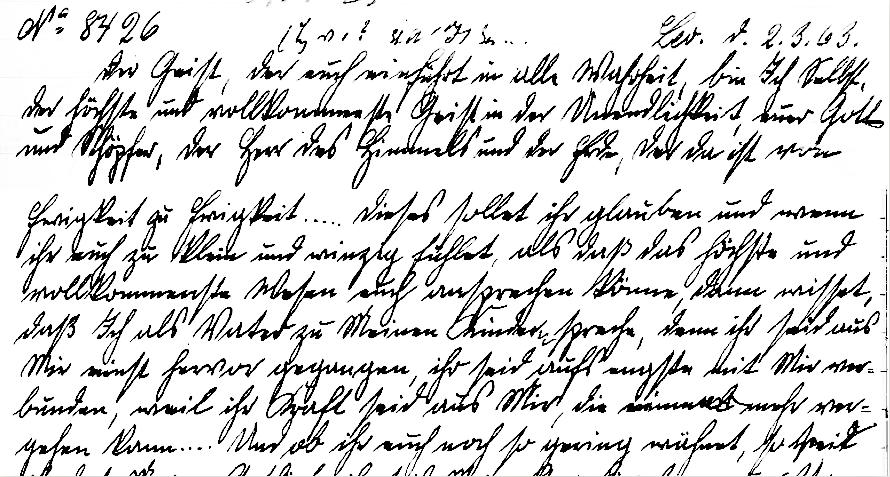 Nº 8426 Lev. d. 2.3.63.
Der Geist, der euch einführt in alle Wahrheit, bin Ich Selbst,
der höchste und vollkommenste Geist in der Unendlichkeit, euer Gott
und Schöpfer, der Herr des Himmels und der Erde, der da ist von
Ewigkeit zu Ewigkeit..... Dieses sollet ihr glauben und wenn
ihr euch zu klein und winzig fühlet, als daß das höchste und
vollkommenste Wesen euch ansprechen könne, dann wisset,
daß Ich als Vater zu Meinen Kindern spreche, denn ihr seid aus
Mir einst hervor gegangen, ihr seid aufs engste mit Mir ver-
bunden, weil ihr Kraft seid aus Mir, die nimmermehr ver-
gehen kann.... Und ob ihr euch noch so gering wähnet, so seid